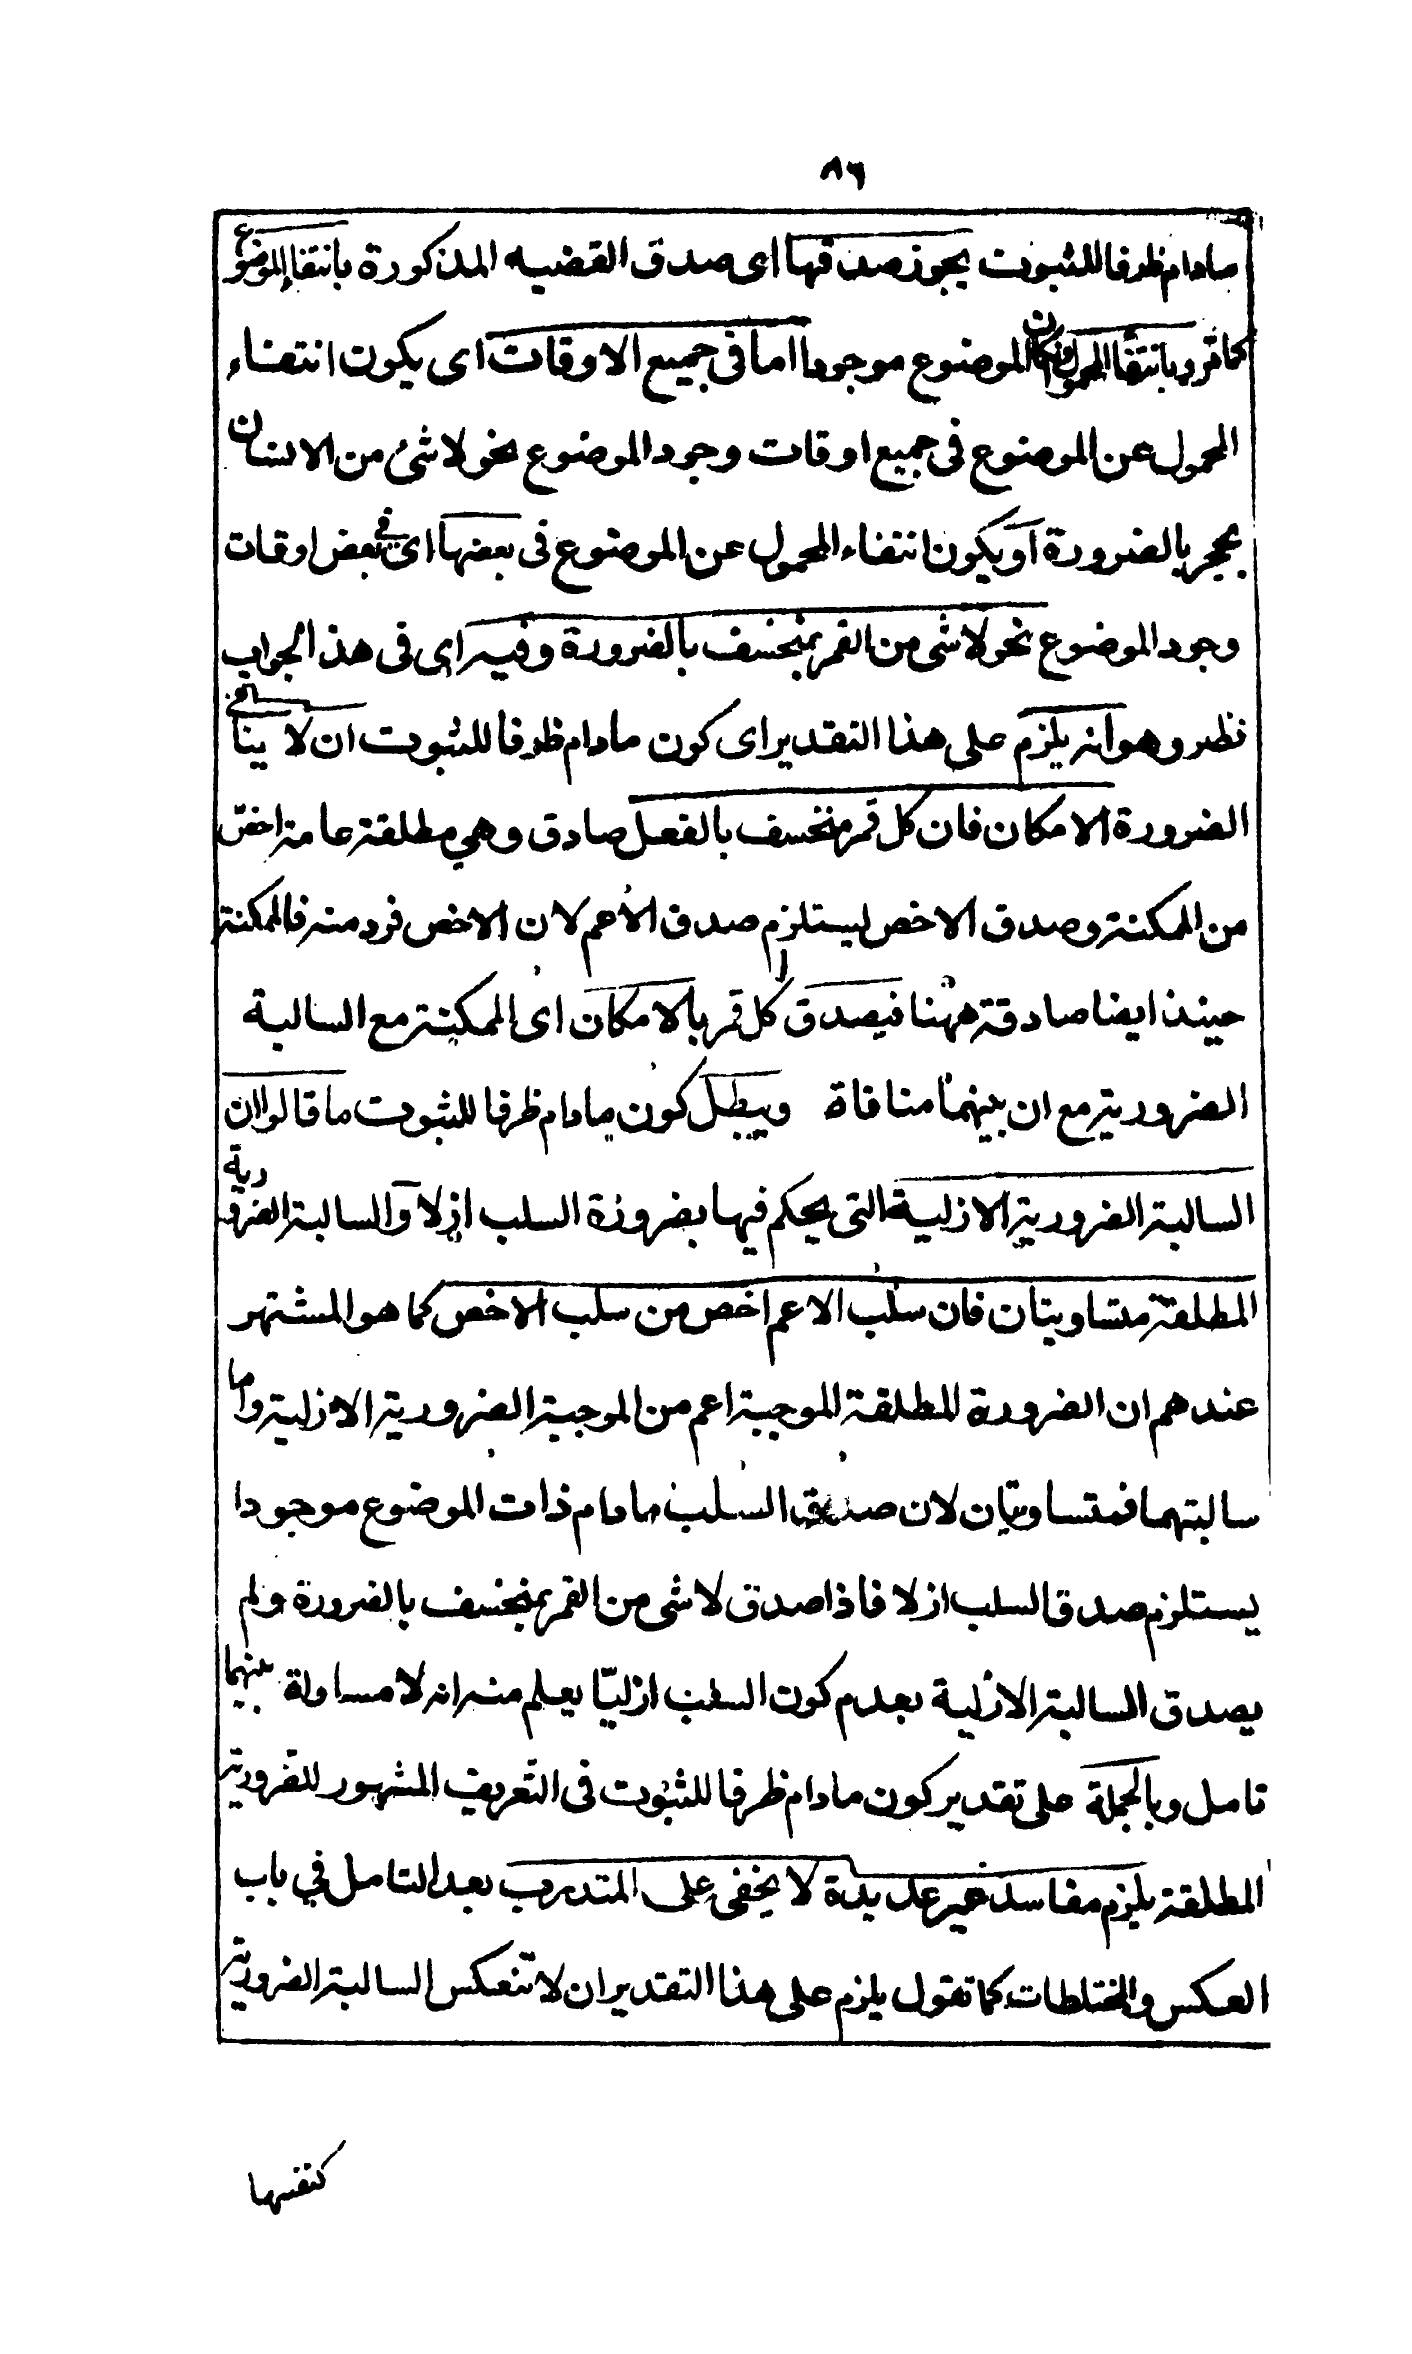 ٨٦
مادام ظرفا للثبوت يجوز صدقها اى صدق القضيه المذكورة بانتفاء الموضوع
كما قرر وبانتفاء المحمول وان كان الموضوع موجودا اما فى جميع الاوقات اى يكون انتفاء
المحمول عن الموضوع فى جميع اوقات وجود الموضوع نحو لا شئ من الانسان
بحجر بالضرورة او يكون انتفاء المحمول عن الموضوع فى بعضها اى فى بعض اوقات
وجود الموضوع نحو لا شى من القمر بمنخسف بالضرورة وفيه اى فى هذ الجواب
نظر وهو انه يلزم على هذا التقدير اى كون مادام ظرفا للثبوت ان لا ينافى
الضرورة الامكان فان كل قمر منخسف بالفعل صادق وهي مطلقة عامة اخص
من الممكنة وصدق الاخص ليستلزم صدق الاعم لان الاخص فرد منه فالممكنة
حينئذ ايضا صادقة ههنا فيصدق كل قمر بالامكان اى الممكنة مع السالبة
الضرورية مع ان بينهما منافاة ويبطل كون مادام ظرفا للثبوت ما قالوا ان
السالبة الضرورية الازلية التى يحكم فيها بضرورة السلب ازلا والسالبة الضرورية
المطلقة متساويتان فان سلب الاعم اخص من سلب الاخص كما هو المشتهر
عندهم ان الضرورة المطلقة الموجبة اعم من الموجبة الضرورية الازلية واما
سالبتهما فمتساويتان لان صدق السلب مادام ذات الموضوع موجودا
يستلزم صدق السلب ازلا فاذا صدق لا شى من القمر بمنخسف بالضرورة ولم
يصدق السالبة الازلية بعدم كون السلب ازليّا يعلم منه انه لا مساواة بينهما
تامل وبالجملة على تقدير كون مادام ظرفا للثبوت فى التعريف المشهور للضرورية
المطلقة يلزم مفاسد غير عديدة لا يخفى على المتدرب بعد التامل في باب
العكس والمختلطات كما تقول يلزم على هذا التقدير ان لا تنعكس السالبة الضرورية
كنفسها